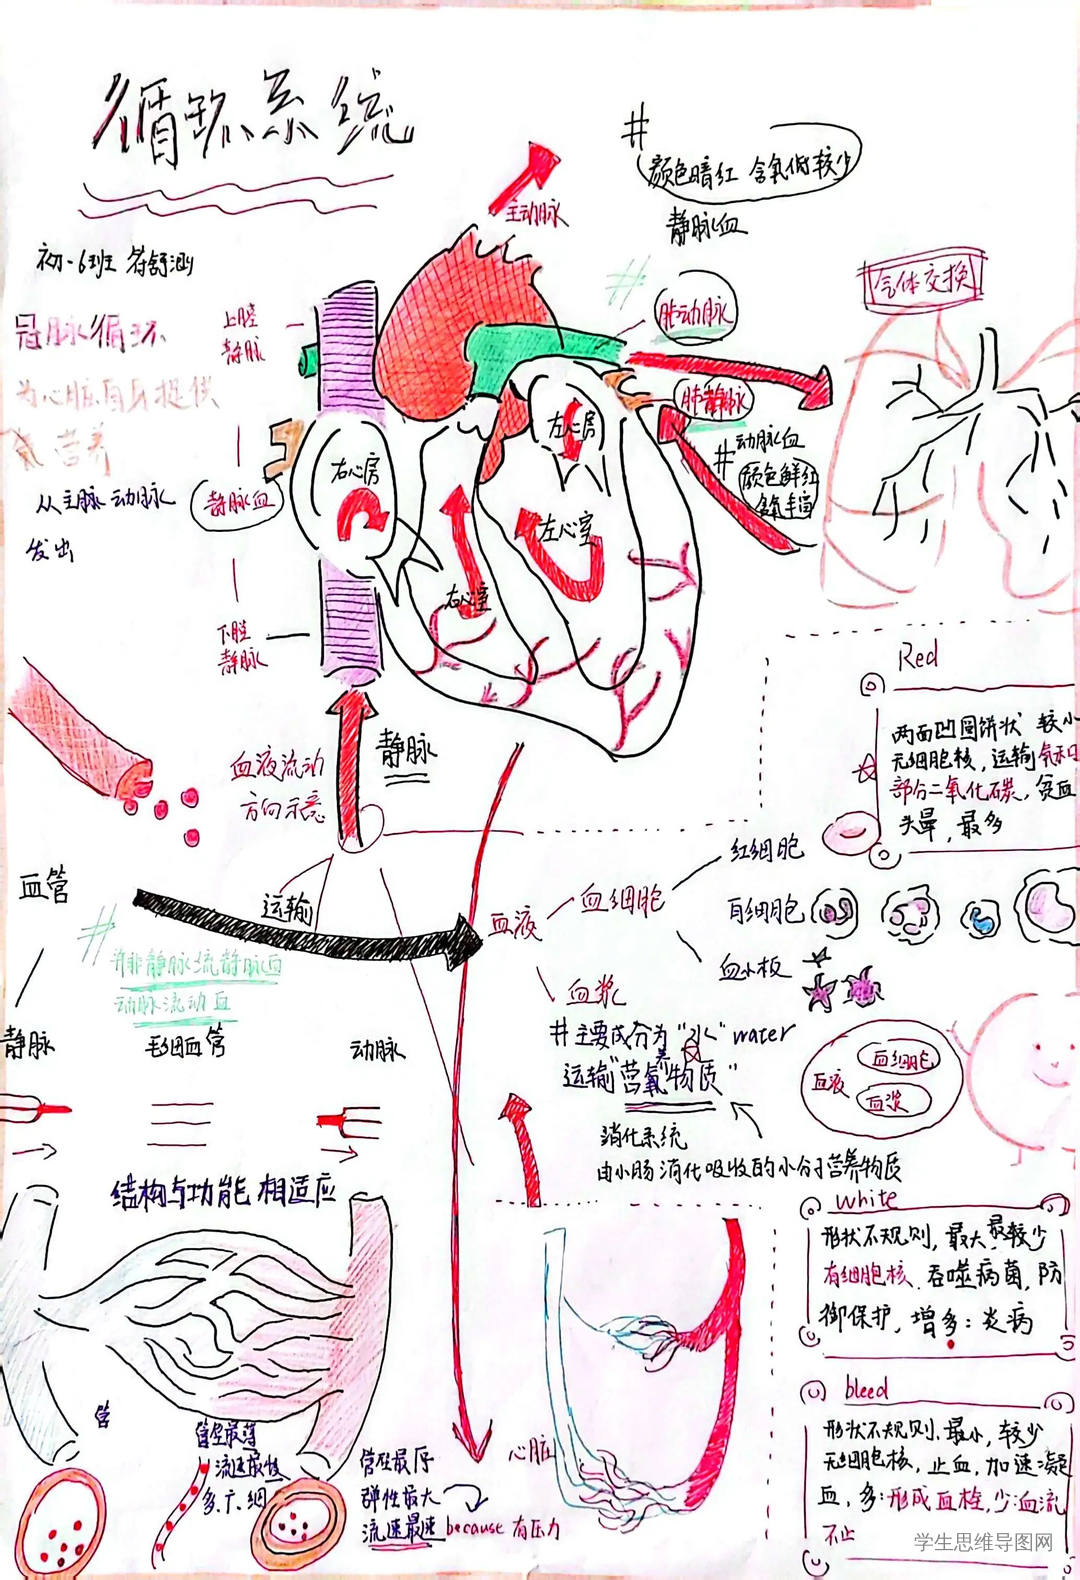 循环系统
初一6班
冠脉循环
为心脏自身提供
营养
从主脉动脉
发出
主动脉
#
颜色暗红 含氧低较少
静脉血
#
肺动脉
气体交换
肺静脉
# 动脉血
颜色鲜红
含氧丰富
上腔
静脉
静脉血
下腔
静脉
右心房
左心房
左心室
右心室
静脉
血液流动
方向示意
血管
运输
血液
#
并非静脉流静脉血
动脉流动血
静脉
毛细血管
动脉
血细胞
红细胞
白细胞
血小板
血浆
#主要成分为"水" water
运输"营养物质"
消化系统
由小肠消化吸收的小分子营养物质
血液
血细胞
血浆
Red
两面凹圆饼状 较小
无细胞核，运输氧和
部分二氧化碳，贫血
头晕，最多
white
形状不规则，最大，最较少
有细胞核，吞噬病菌，防
御保护，增多：炎病
bleed
形状不规则，最小，较少
无细胞核，止血，加速凝
血，多：形成血栓，少：血流
不止
结构与功能相适应
管
管壁最薄
流速最慢
多、广、细
管壁最厚
弹性最大
流速最速 because 有压力
心脏
学生思维导图网